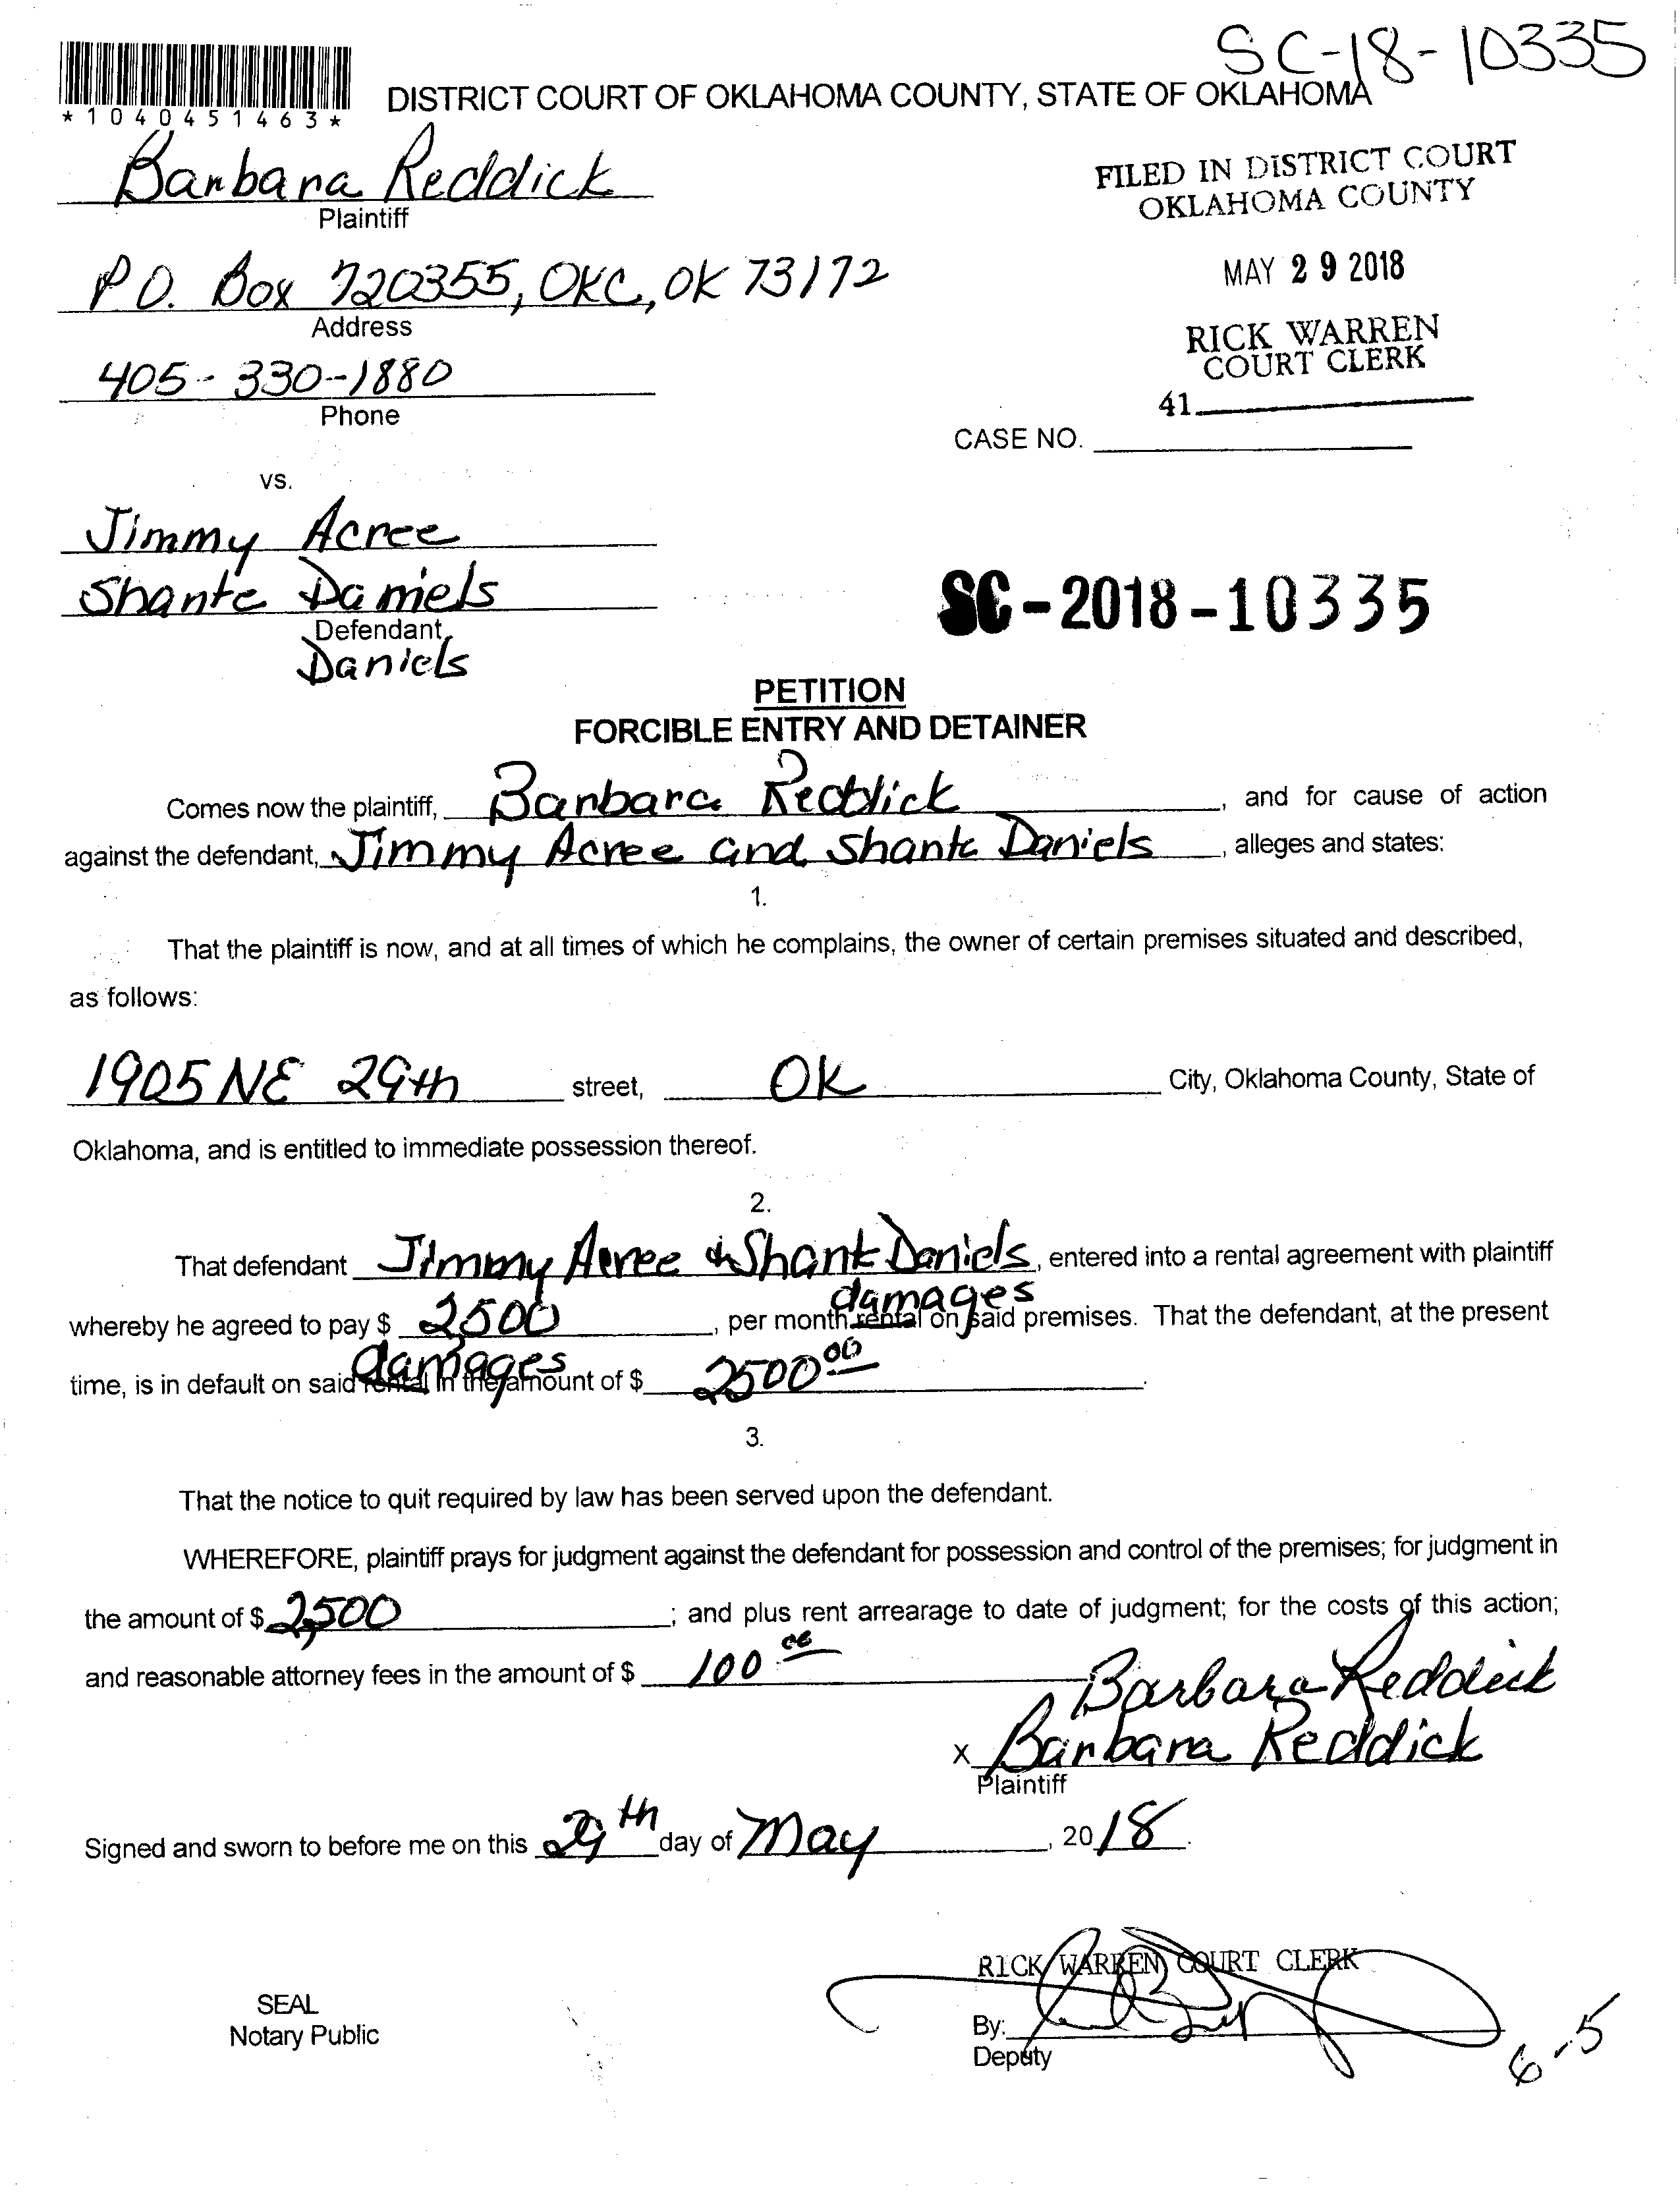 SC-18-10335
*1040451463*
DISTRICT COURT OF OKLAHOMA COUNTY, STATE OF OKLAHOMA
Barbara Reddick
Plaintiff
FILED IN DISTRICT COURT
OKLAHOMA COUNTY
P.O. Box 720355, OKC, OK 73172
Address
MAY 29 2018
RICK WARREN
COURT CLERK
405-330-1880
Phone
41
CASE NO.
vs.
Jimmy Acree
Shante Daniels
Defendant
Daniels
SC-2018-10335
PETITION
FORCIBLE ENTRY AND DETAINER
Comes now the plaintiff, Barbara Reddick, and for cause of action
against the defendant, Jimmy Acree and Shante Daniels, alleges and states:
1.
That the plaintiff is now, and at all times of which he complains, the owner of certain premises situated and described,
as follows:
1905 NE 29th street, OK City, Oklahoma County, State of
Oklahoma, and is entitled to immediate possession thereof.
2.
That defendant Jimmy Acree & Shante Daniels, entered into a rental agreement with plaintiff
damages
whereby he agreed to pay $ 2500, per month rental on said premises. That the defendant, at the present
damages
time, is in default on said rental in the amount of $ 2500 00.
3.
That the notice to quit required by law has been served upon the defendant.
WHEREFORE, plaintiff prays for judgment against the defendant for possession and control of the premises; for judgment in
the amount of $ 2,500; and plus rent arrearage to date of judgment; for the costs of this action;
and reasonable attorney fees in the amount of $ 100 00
Barbara Reddick
X Barbara Reddick
Plaintiff
Signed and sworn to before me on this 29th day of May, 2018.
RICK WARREN COURT CLERK
SEAL
Notary Public
By:
Deputy
6-5